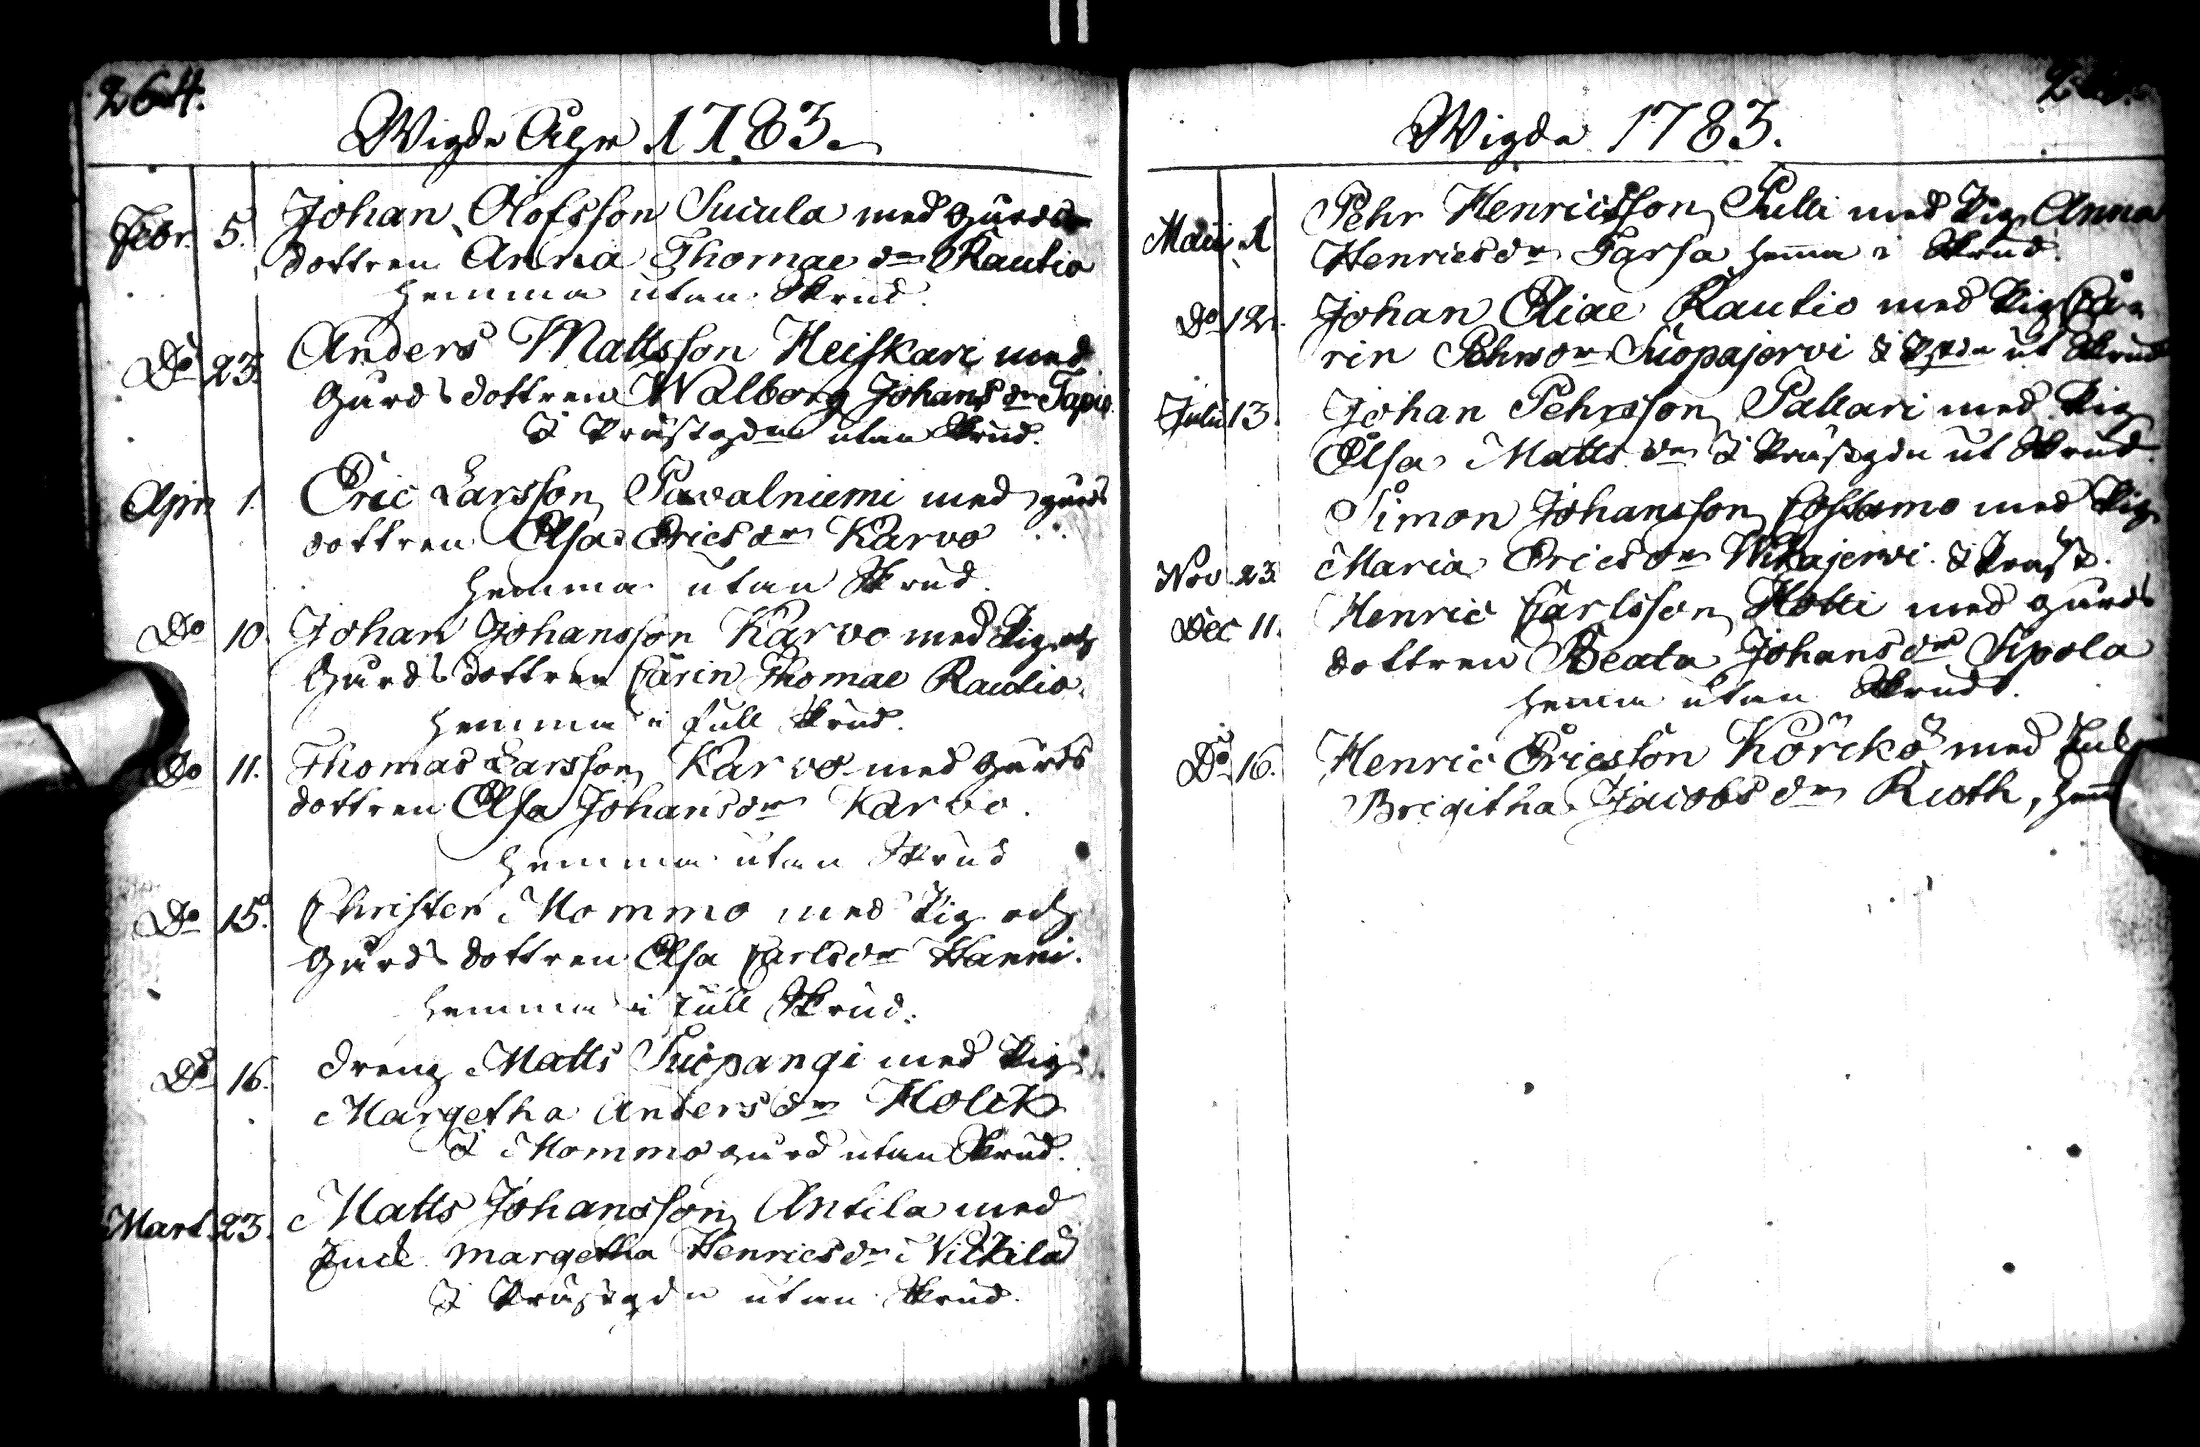 264.
Wigde Åhr 1783.
Febr. 5. Johan Olofsson Sucula med gårds
dottren Anna Thomae dr Rautio
hemma utan Skrud.
Do 23. Anders Mattsson Heiskari med
Gårdsdottren Walborg Johans dr Tapio
I Prästgdn utan Skrud.
Apr. 1. Eric Larsson Pawalniemi med gårds
dottren Elsa Erics dr Karvo
hemma utan Skrud.
Do 10. Johan Johansson Karvo med Pig. och
Gårds dottren Carin Thomae Rautio.
hemma i full Skrud.
Do 11. Thomas Larsson Karvo med gårds
dottren Elsa Johans dr Karvo.
hemma utan Skrud
Do 15. Christer Mommo med Pig. och
Gårds dottren Elsa Carls dr Hanni.
hemma i full Skrud.
Do 16. Dreng Matts Suopangi med Pig.
Margetha Anders dr Holck
I Mommo gård utan Skrud.
Mart. 23. Matts Johansson Antila med
Enck. Margetha Henrics dr Nickilä
I Prästgdn utan Skrud.
Wigde 1783.
Maii 1 Pehr Henricsson Pulli med Pig. Anna
Henrics dr Tarsa hema i Skrud.
Do 12. Johan Eliae Rautio med Pig. Ca
rin Pehrs dr Suopajervi I Pgdn ut Skrud
Julii 13. Johan Pehrsson Pallari med Pig
Elsa Matts dr I Prästgdn ut Skrud.
Simon Johansson Cossamo med Pig.
Nov. 23. Maria Erics dr Wikajervi. I Präst.
Dec 11. Henric Carlsson Hotti med gårds
dottren Beata Johans dr Sipola
hema utan Skrud.
Do 16. Henric Ericsson Körckö med Enk.
Bregitha Jacobs dr Ruoth, hem